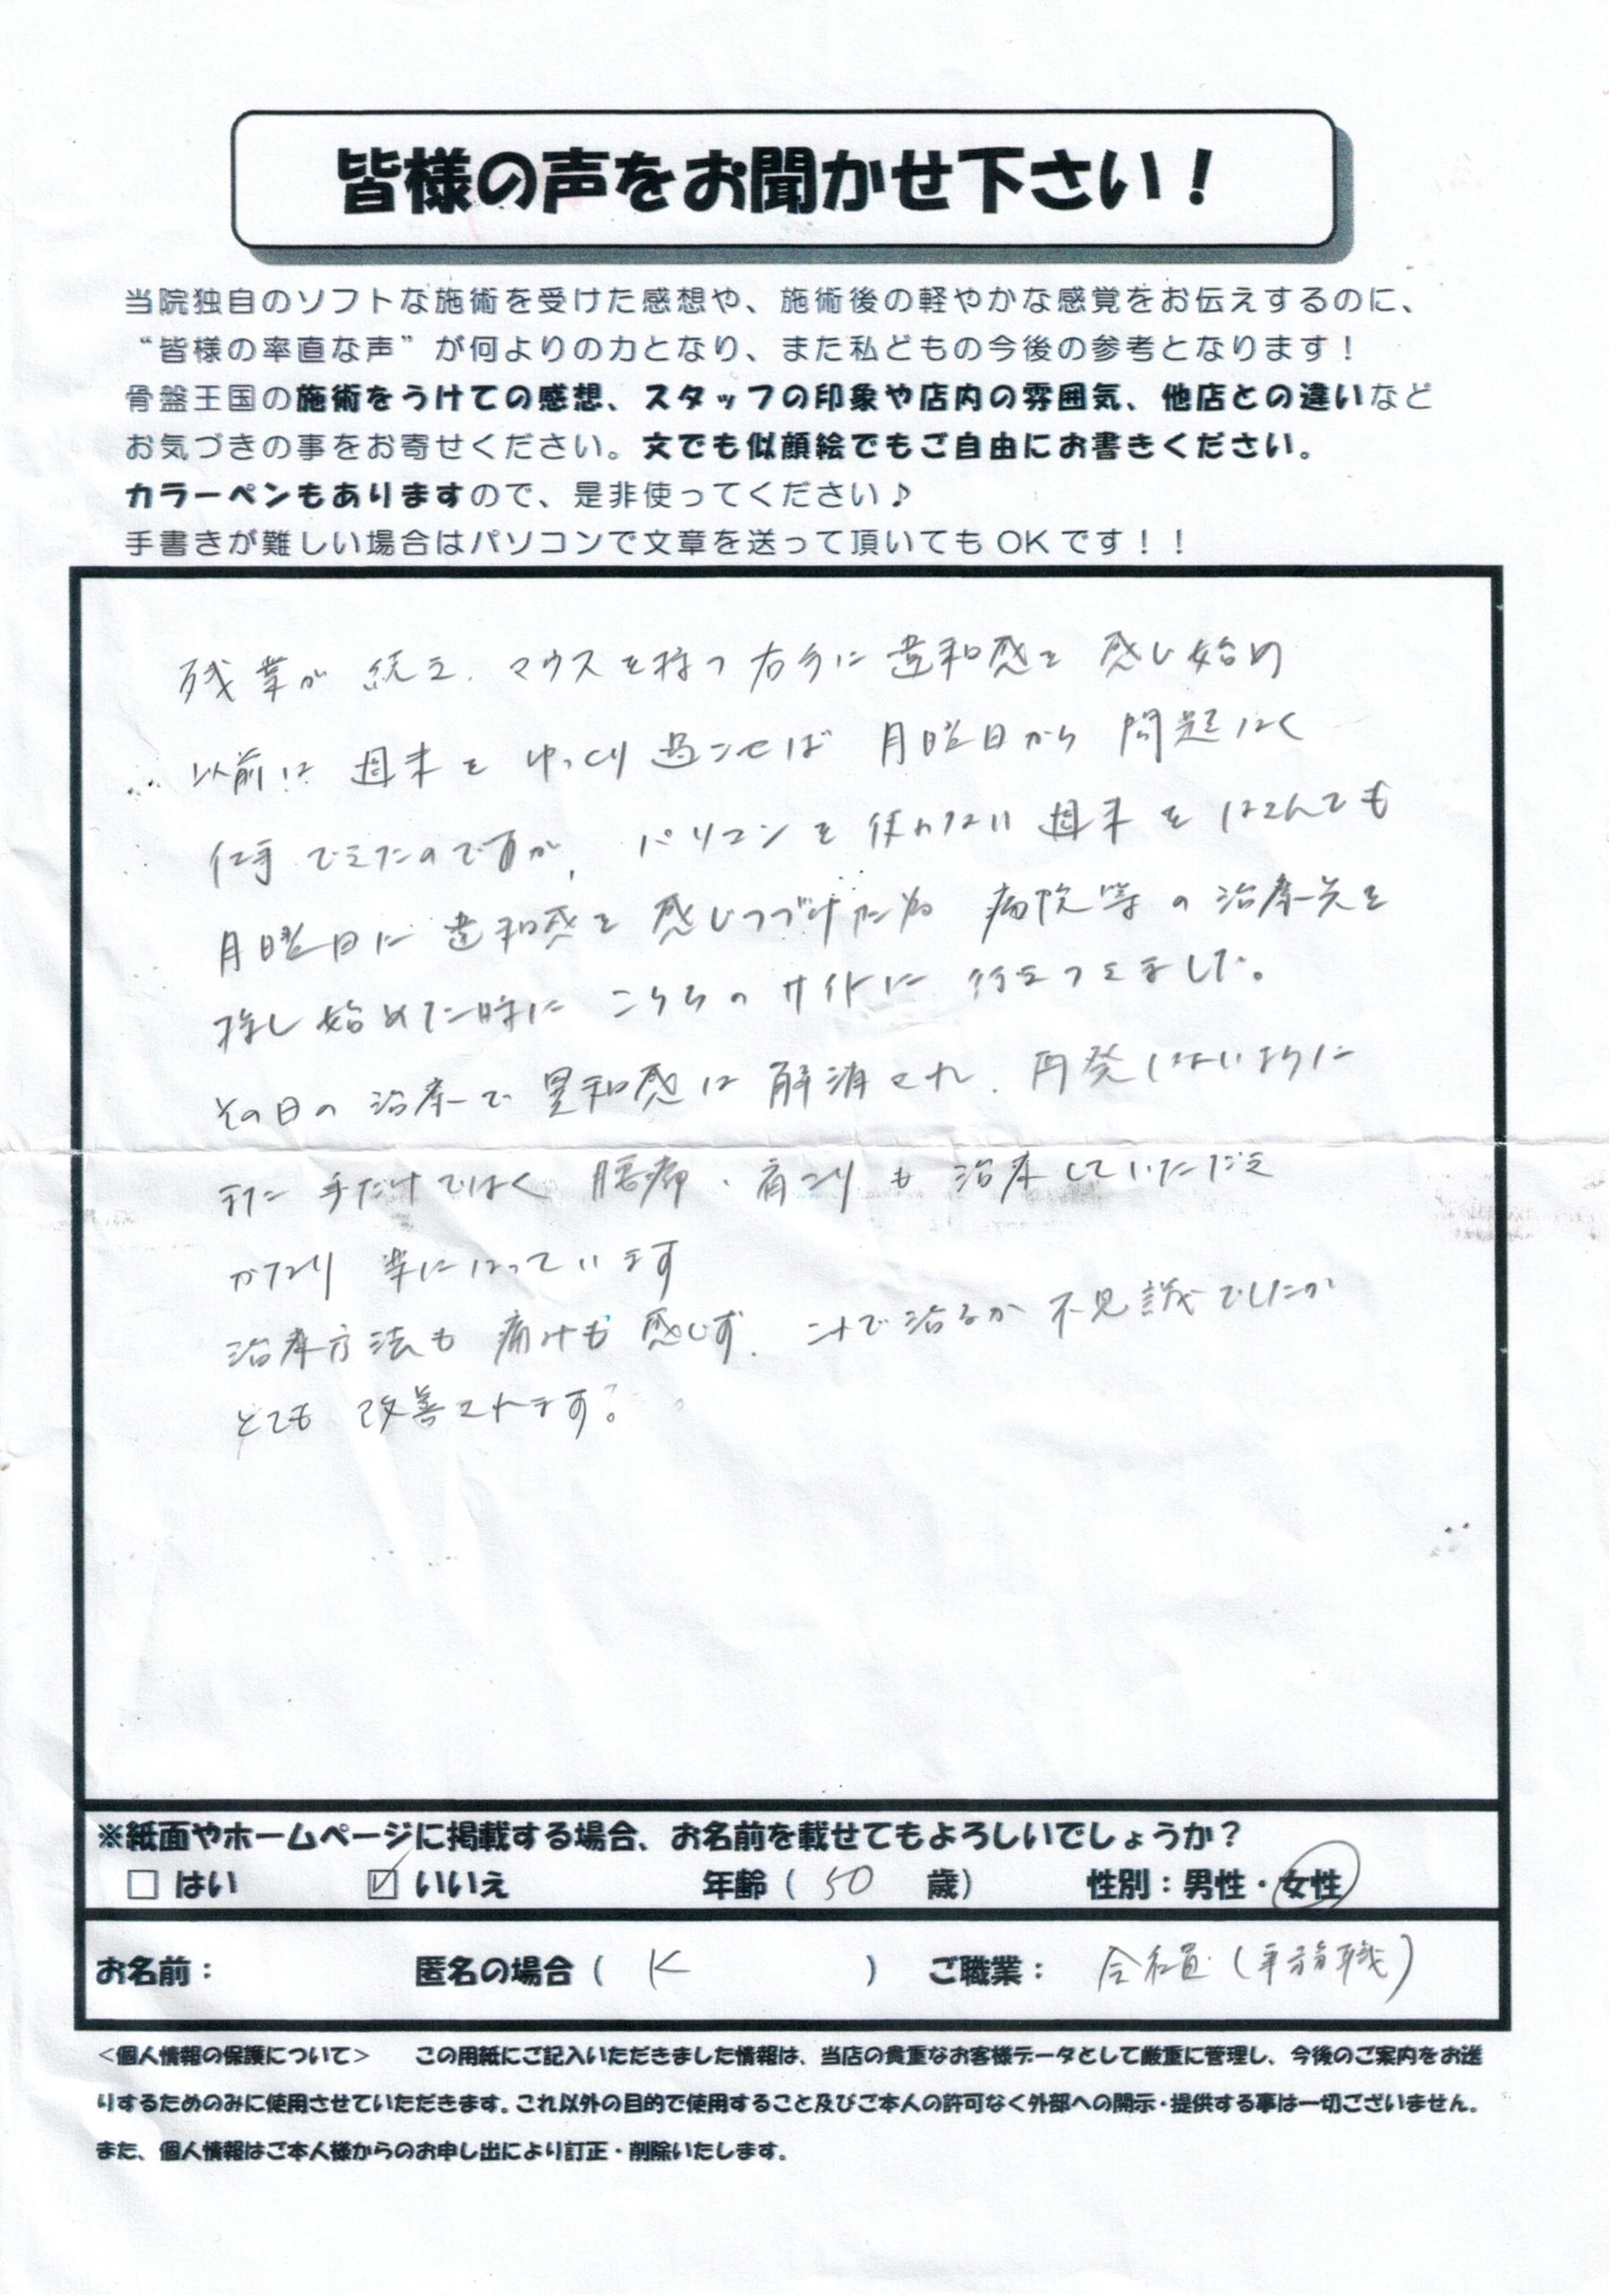 皆様の声をお聞かせ下さい！
当院独自のソフトな施術を受けた感想や、施術後の軽やかな感覚をお伝えするのに、
“皆様の率直な声”が何よりの力となり、また私どもの今後の参考となります！
骨盤王国の施術をうけての感想、スタッフの印象や店内の雰囲気、他店との違いなど
お気づきの事をお寄せください。文でも似顔絵でもご自由にお書きください。
カラーペンもありますので、是非使ってください♪
手書きが難しい場合はパソコンで文章を送って頂いてもOKです！！
残業が続き、マウスを持つ右手に違和感を感じ始め
以前は週末をゆっくり過ごせば月曜日から問題なく
仕事できたのですが、パソコンを使わない週末をはさんでも
月曜日に違和感を感じつづけた為病院等の治療先を
探し始めた時にこちらのサイトに行きつきました。
その日の治療で違和感は解消され、再発しないように
また手だけではなく腰痛・肩こりも治療していただき
かなり楽になっています
治療方法も痛みも感じず、これで治るか不思議でしたが
とても改善されます。
※紙面やホームページに掲載する場合、お名前を載せてもよろしいでしょうか？
□はい ☑いいえ 年齢（50歳） 性別：男性・女性
お名前： 匿名の場合（K） ご職業：会社員（事務職）
＜個人情報の保護について＞ この用紙にご記入いただきました情報は、当店の貴重なお客様データとして厳重に管理し、今後のご案内をお送
りするためのみに使用させていただきます。これ以外の目的で使用すること及びご本人の許可なく外部への開示・提供する事は一切ございません。
また、個人情報はご本人様からのお申し出により訂正・削除いたします。